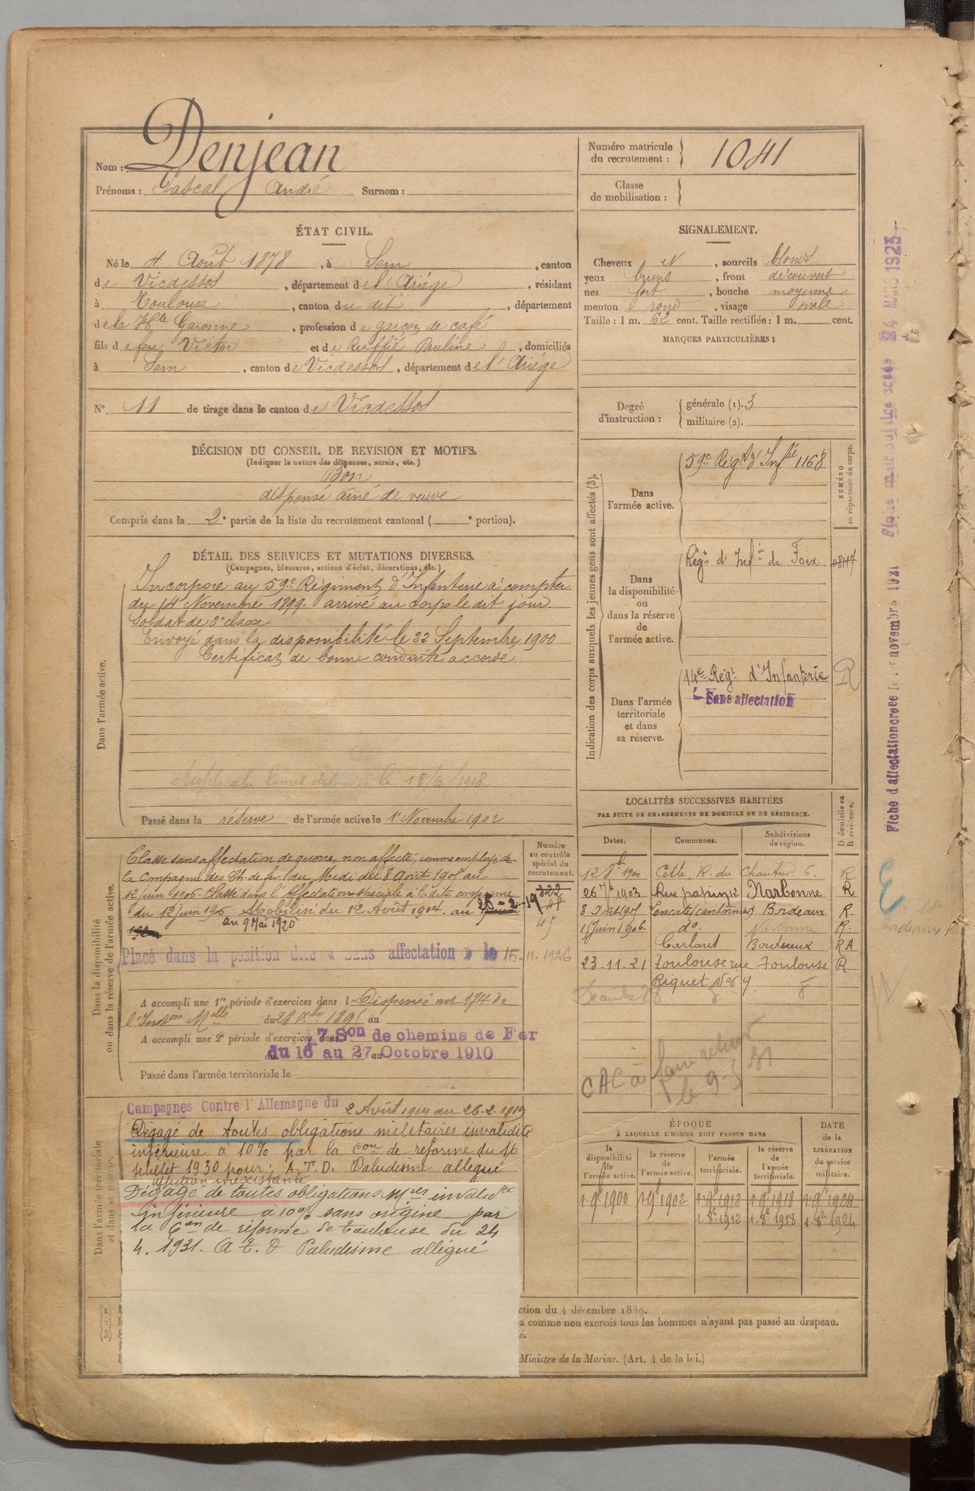 Nom : Denjean
Prénoms : Pascal André Surnom :
Numéro matricule du recrutement : 1041
Classe de mobilisation :
ÉTAT CIVIL.
Né le 4 Août 1878, à Sem, canton
de Vicdessos, département de l'Ariège, résidant
à Toulouse, canton du dit, département
de la Hte Garonne, profession de garçon de café
fils de feu Victor et de Ruffié Pauline, domiciliés
à Sem, canton de Vicdessos, département de l'Ariège
N° 11 de tirage dans le canton de Vicdessos
SIGNALEMENT.
Cheveux N, sourcils blonds
yeux bruns, front découvert
nez fort, bouche moyenne
menton rond, visage ovale
Taille : 1 m. 62 cent. Taille rectifiée : 1 m. cent.
MARQUES PARTICULIÈRES :
Degré d'instruction : générale (1). 3
militaire (2).
DÉCISION DU CONSEIL DE REVISION ET MOTIFS.
(Indiquer la nature des dispenses, sursis, etc.)
Bon
dispensé aîné de veuve
Compris dans la 2e partie de la liste du recrutement cantonal ( e portion).
DÉTAIL DES SERVICES ET MUTATIONS DIVERSES.
(Campagnes, blessures, actions d'éclat, décorations, etc.)
Dans l'armée active.
Incorporé au 59e Régiment d'Infanterie à compter
du 14 Novembre 1899 arrivé au corps le dit jour
Soldat de 2e classe
Envoyé dans la disponibilité le 22 Septembre 1900
Certificat de bonne conduite accordé
le 18/6/1918
Passé dans la réserve de l'armée active le 1er Novembre 1902
Indication des corps auxquels les jeunes gens sont affectés (3).
NUMÉRO au répertoire du corps.
Dans l'armée active.
59e Régt d'Infie 1168
Dans la disponibilité ou dans la réserve de l'armée active.
Régt d'Infie de Foix
Dans l'armée territoriale et dans sa réserve.
14e Régt d'Infanterie R
Sans affectation
Dans la disponibilité ou dans la réserve de l'armée active.
Numéro au contrôle spécial du recrutement.
Classé sans affectation de guerre, non affecté, comme employé de
la Compagnie des Ch. de fer du Midi du 8 Août 1901 au
12 juin 1906. Classé dans l'Affectation spéciale à
du 12 juin 1906. Mobilisé du 2 Août 1914 au 26-2-19
au 9 Mai 1920
Placé dans la position dite « sans affectation » le 15-11-1926
A accompli une 1re période d'exercices dans l Dispensé art
du 28 1895 au
A accompli une 2e période d'exercices dans 7 Son de chemins de Fer
du 16 au 27 Octobre 1910
Passé dans l'armée territoriale le
LOCALITÉS SUCCESSIVES HABITÉES
PAR SUITE DE CHANGEMENTS DE DOMICILE OU DE RÉSIDENCE.
Dates. Communes. Subdivisions de région. D domicile ou R résidence.
1900 Cette, R. du R
1903 Narbonne R
Bordeaux R.
1 Juin 1906 do R.
Bordeaux RA
23-11-21 Toulouse rue Toulouse R
Riquet No 9
Dans l'armée territoriale et dans sa réserve.
Campagnes Contre l'Allemagne du 2 Août 1914 au 26-2-1919
Dégagé de toutes obligations militaires invalidité
inférieure à 10% par la Con de réforme du 16
juillet 1930 pour : A.T.D. Paludisme allégué
affection inexistante
Dégagé de toutes obligations Mres invalidité
inférieure à 10% sans origine par
la Con de réforme de Toulouse du 24
4. 1931. A.T.D Paludisme allégué
ÉPOQUE
À LAQUELLE L'HOMME DOIT PASSER DANS
DATE de la LIBÉRATION du service militaire.
la disponibilité de l'armée active. la réserve de l'armée active. l'armée territoriale. la réserve de l'armée territoriale.
1900 1902
1912 1918 1924
ction du 4 décembre 1889.
a comme non exercés tous les hommes n'ayant pas passé au drapeau.
Ministre de la Marine. (Art. 4 de la loi.)
Fiche d'affectation créée le novembre 1921
MARS 1923